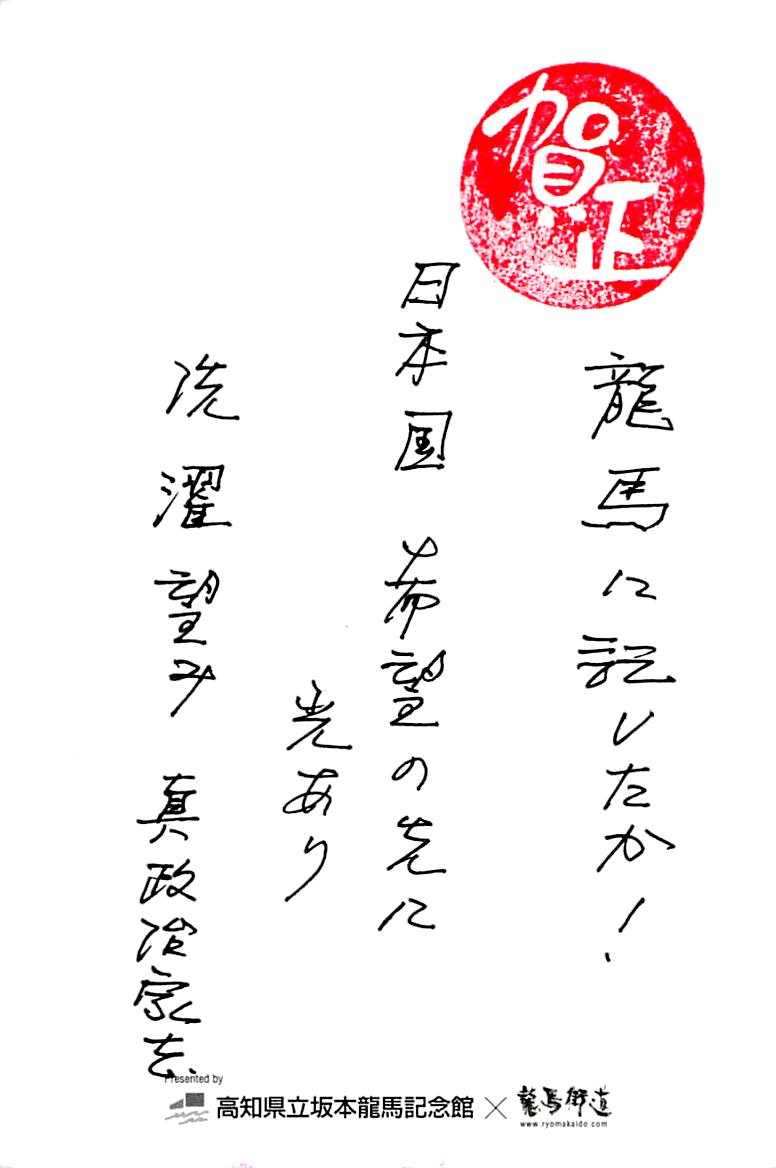 賀正
龍馬に記したか!
日本国 希望の先に
光あり
洗濯望み 真政治家志
Presented by
高知県立坂本龍馬記念館 × 龍馬街道
www.ryomakaido.com